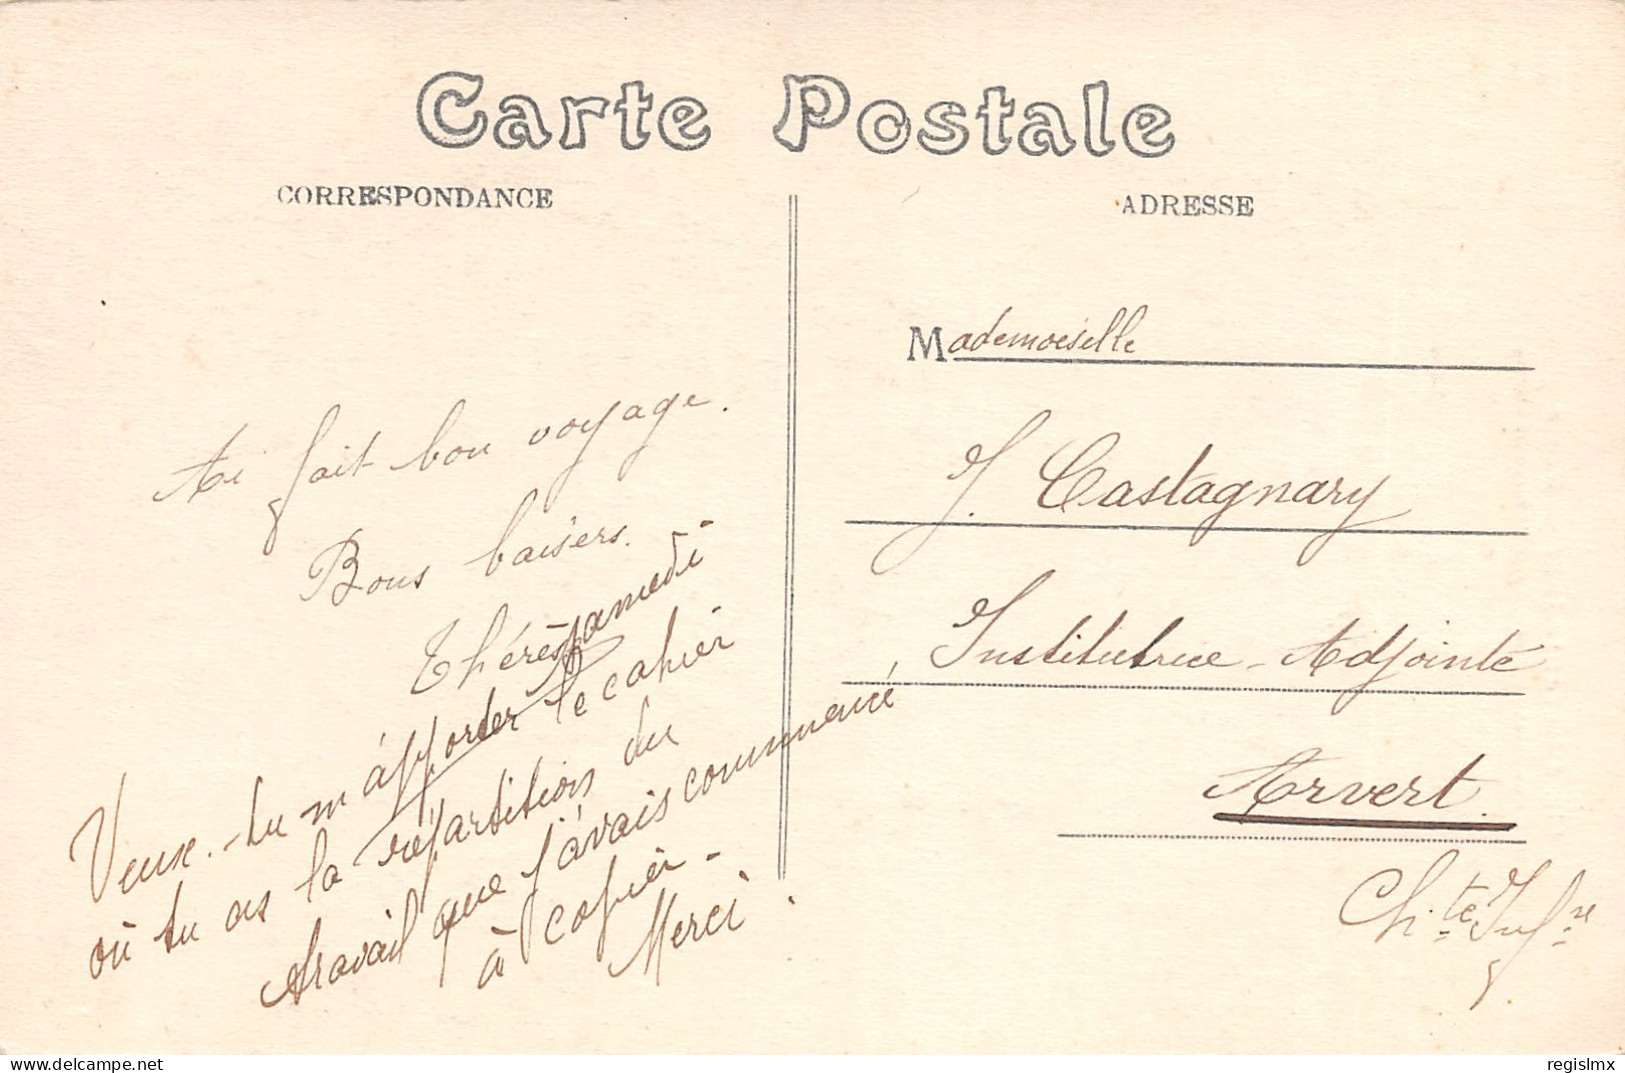 Carte Postale
CORRESPONDANCE
ADRESSE
Ai fait bon voyage.
Bons baisers.
Thérèse
Veux-tu m'apporter samedi
le cahier
où tu as la répartition du
travail que j'avais commencé
à copier -
Merci.
Mademoiselle
J. Castagnary
Institutrice-Adjointe
Arvert.
Ch.te Infre
www.delcampe.net
regislmx